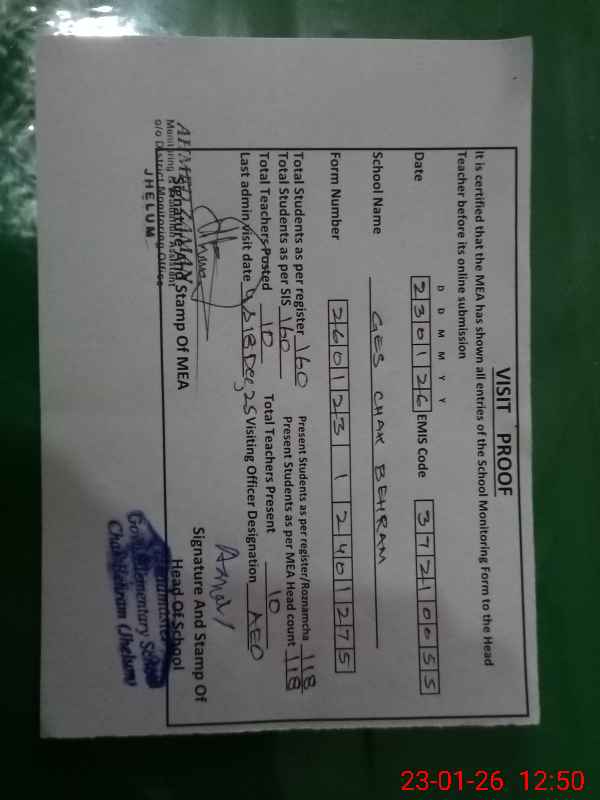 VISIT PROOF
It is certified that the MEA has shown all entries of the School Monitoring Form to the Head
Teacher before its online submission
D D M M Y Y
Date 230126 EMIS Code 37210055
School Name GES CHAK BEHRAM
Form Number 260123 1 2401275
Total Students as per register 160 Present Students as per register/Roznamcha 118
Total Students as per SIS 160 Present Students as per MEA Head count 118
Total Teachers Posted 10 Total Teachers Present 10
Last admin visit date 18 Dec, 25 Visiting Officer Designation AEO
Signature And Stamp Of MEA
AHMED ZAMAN
Monitoring & Evaluation Assistant
o/o District Monitoring Office
JHELUM
Signature And Stamp Of
Head Of School
Headmaster
Govt. Elementary School
Chak Behram (Jhelum)
23-01-26 12:50